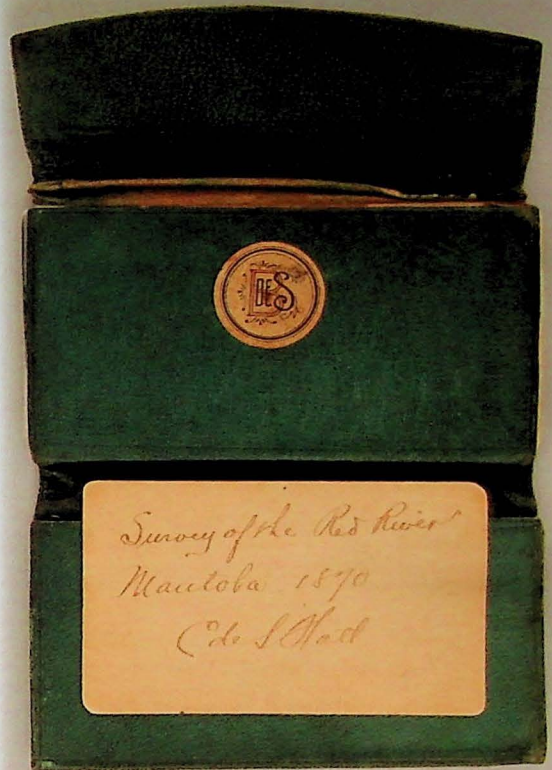 DES
Survey of the Red River
Manitoba 1870
C de S Hall